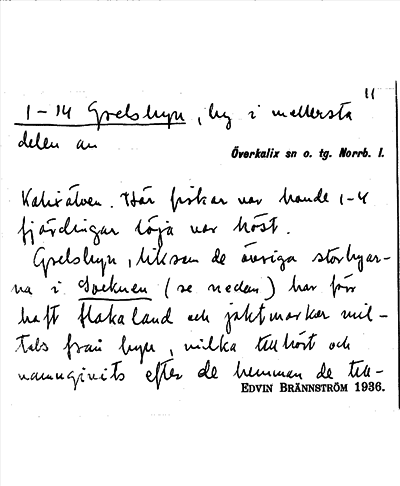 11
1-14 Grelsbyn, by i mellersta
delen av
Överkalix sn o. tg. Norrb. l.
Kalixälven. Här fiskar var bonde 1-4
fjärdingar löja var höst.
Grelsbyn, liksom de övriga storbyar-
na i Socknen (se nedan) har för
haft flakaland och jaktmarker mil-
tals från byn, vilka tillhört och
namngivits efter de hemman de till-
EDVIN BRÄNNSTRÖM 1936.